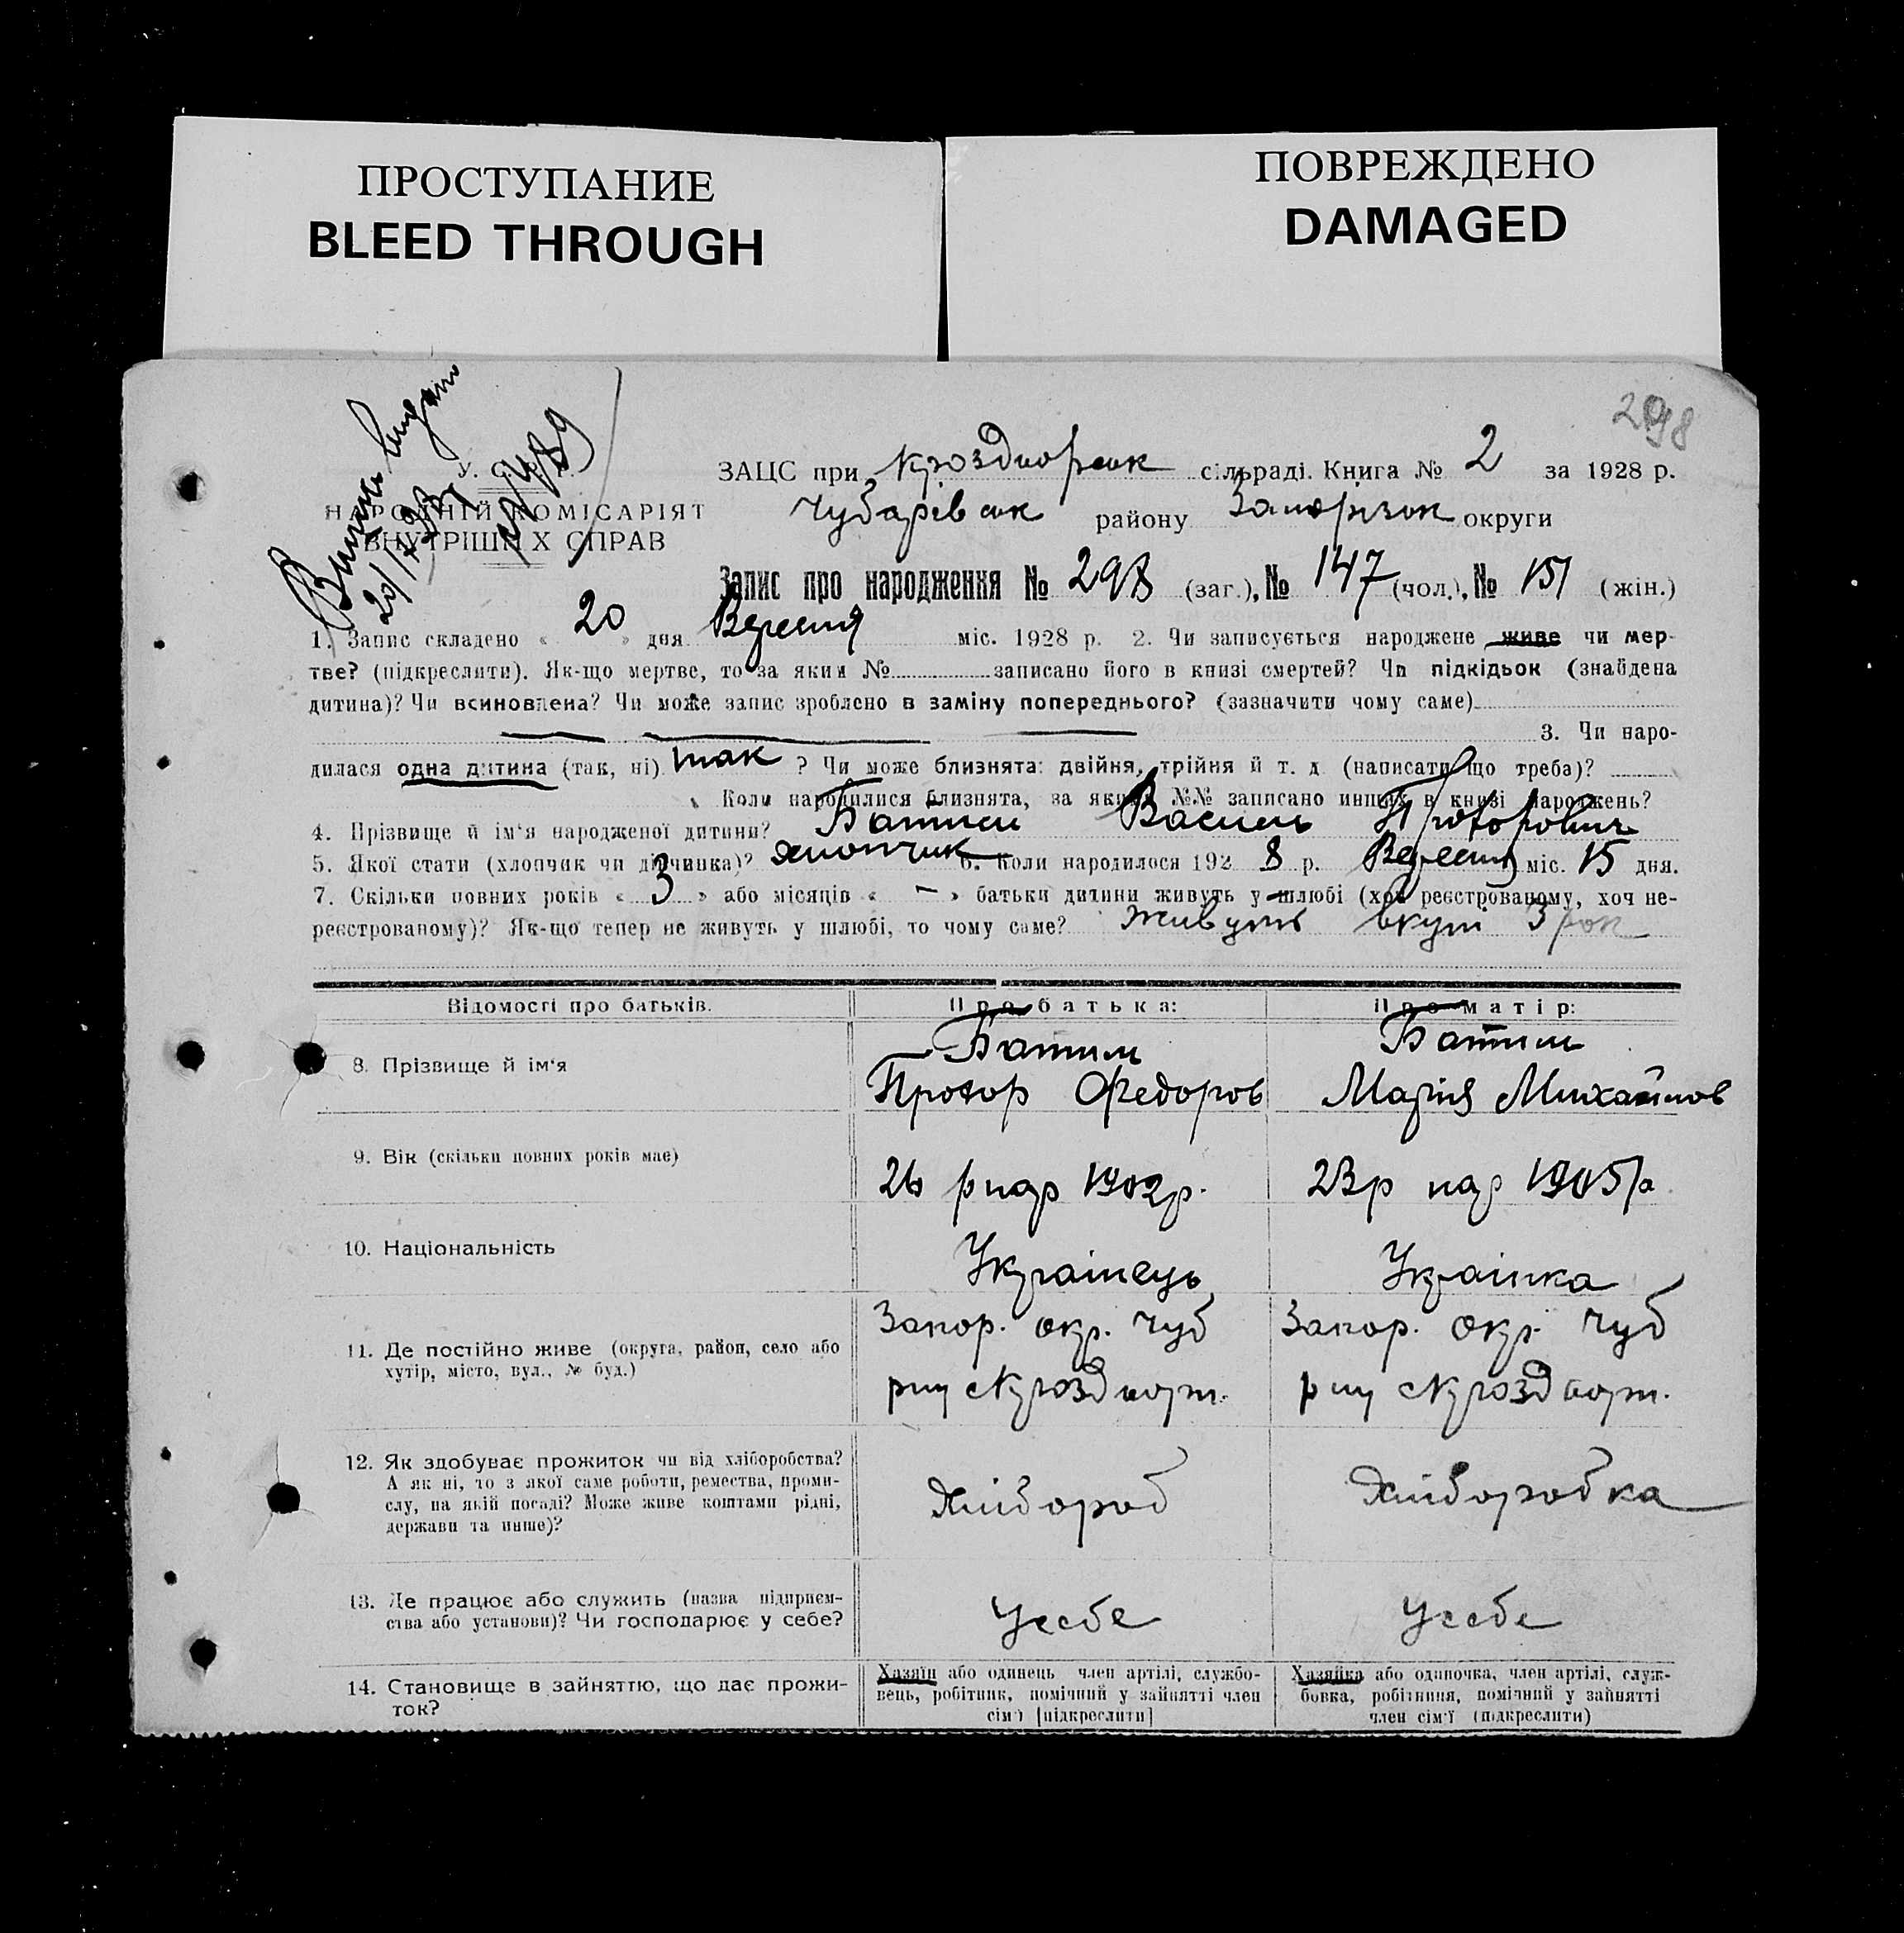 ПРОСТУПАНИЕ
BLEED THROUGH
ПОВРЕЖДЕНО
DAMAGED
298
У. С. Р. Р.
НАРОДНІЙ КОМІСАРІЯТ
ВНУТРІШНІХ СПРАВ
ЗАЦС при сільраді. Книга № 2 за 1928 р.
Чубарівськ району Запорізьк округи
Запис про народження № 298 (заг.), № 147 (чол.), № 151 (жін.)
1. Запис складено « 20 » дня Вересня міс. 1928 р. 2. Чи записується народжене живе чи мер-
тве? (підкреслити). Як-що мертве, то за яким № записано його в книзі смертей? Чи підкідьок (знайдена
дитина)? Чи всиновлена? Чи може запис зроблено в заміну попереднього? (зазначити чому саме)
3. Чи наро-
дилася одна дитина (так, ні) так ? Чи може близнята: двійня, трійня й т. д. (написати що треба)?
Коли народилися близнята, за яким №№ записано инших в книзі народжень?
4. Прізвище й ім'я народженої дитини? Батит Василь Прохорович
5. Якої стати (хлопчик чи дівчинка)? хлопчик 6. Коли народилося 192 8 р. Вересня міс. 15 дня.
7. Скільки повних років « 3 » або місяців « — » батьки дитини живуть у шлюбі (хоч реєстрованому, хоч не-
реєстрованому)? Як-що тепер не живуть у шлюбі, то чому саме? живуть вкупі 3 рок
Відомості про батьків.
Про батька:
Про матір:
8. Прізвище й ім'я
Прохор Федоров
Марія Михайлов
9. Вік (скільки повних років має)
26 р нар 1902 р.
23 р нар 1905 р
10. Національність
Українець
Українка
11. Де постійно живе (округа, район, село або
хутір, місто, вул., № буд.)
Запор. окр. Чуб
Запор. окр. Чуб
12. Як здобуває прожиток чи від хліборобства?
А як ні, то з якої саме роботи, ремества, проми-
слу, на якій посаді? Може живе коштами рідні,
держави та инше)?
Хлібороб
Хліборобка
13. Де працює або служить (назва підприєм-
ства або установи)? Чи господарює у себе?
У себе
У себе
14. Становище в зайняттю, що дає прожи-
ток?
Хазяїн або одинець член артілі, службо-
вець, робітник, помічний у зайнятті член
сім'ї [підкреслити]
Хазяйка або одиночка, член артілі, служ-
бовка, робітниця, помічний у зайнятті
член сім'ї (підкреслити)